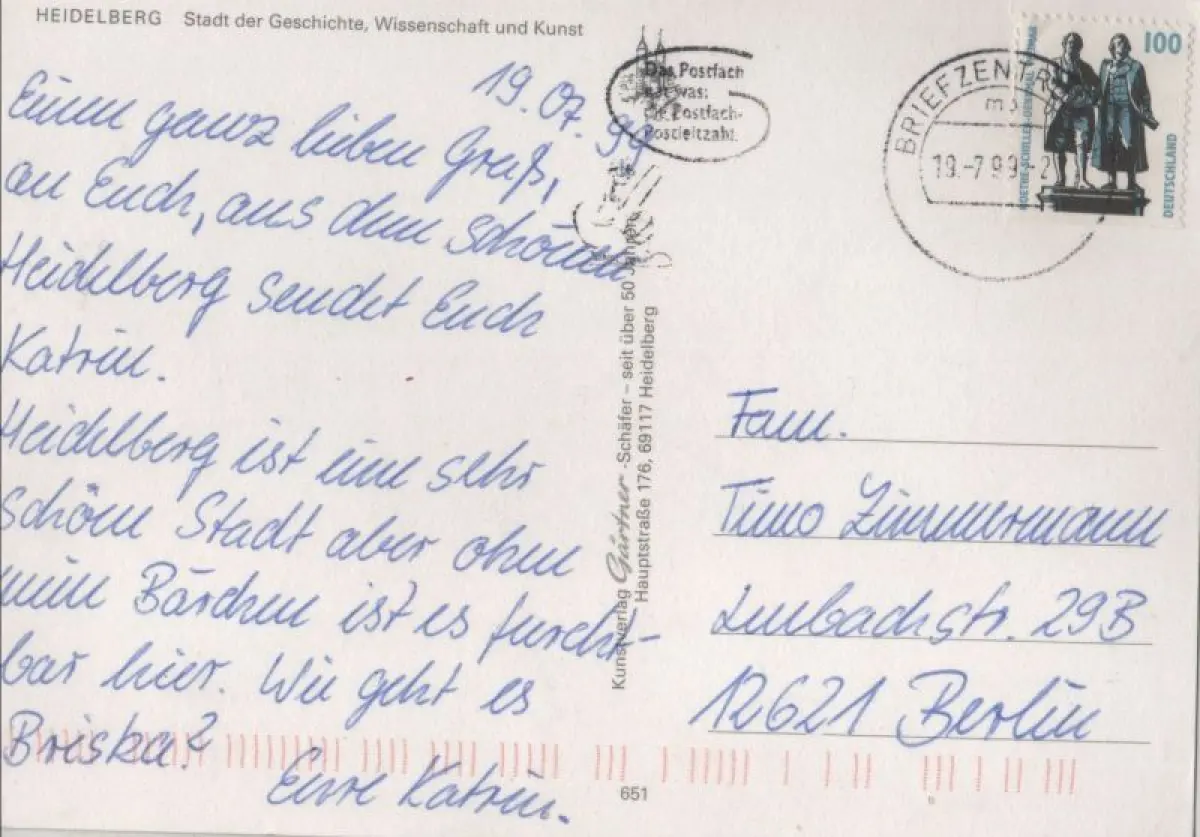 HEIDELBERG Stadt der Geschichte, Wissenschaft und Kunst
19.07.99
Einen ganz lieben Gruß,
an Euch, aus dem schönen
Heidelberg sendet Euch
Katrin.
Heidelberg ist eine sehr
schöne Stadt aber ohne
mein Bärchen ist es furcht-
bar hier. Wie geht es
Briska?
Eure Katrin.
Das Postfach
hat was:
die Postfach-
Postleitzahl.
BRIEFZENTR
19.-7.99-2
GOETHE-SCHILLER-DENKMAL WEIMAR
100
DEUTSCHLAND
Kunstverlag Gärtner-Schäfer – seit über 50 Jahren
Hauptstraße 176, 69117 Heidelberg
Fam.
Timo Zimmermann
Lenbachstr. 29B
12621 Berlin
651